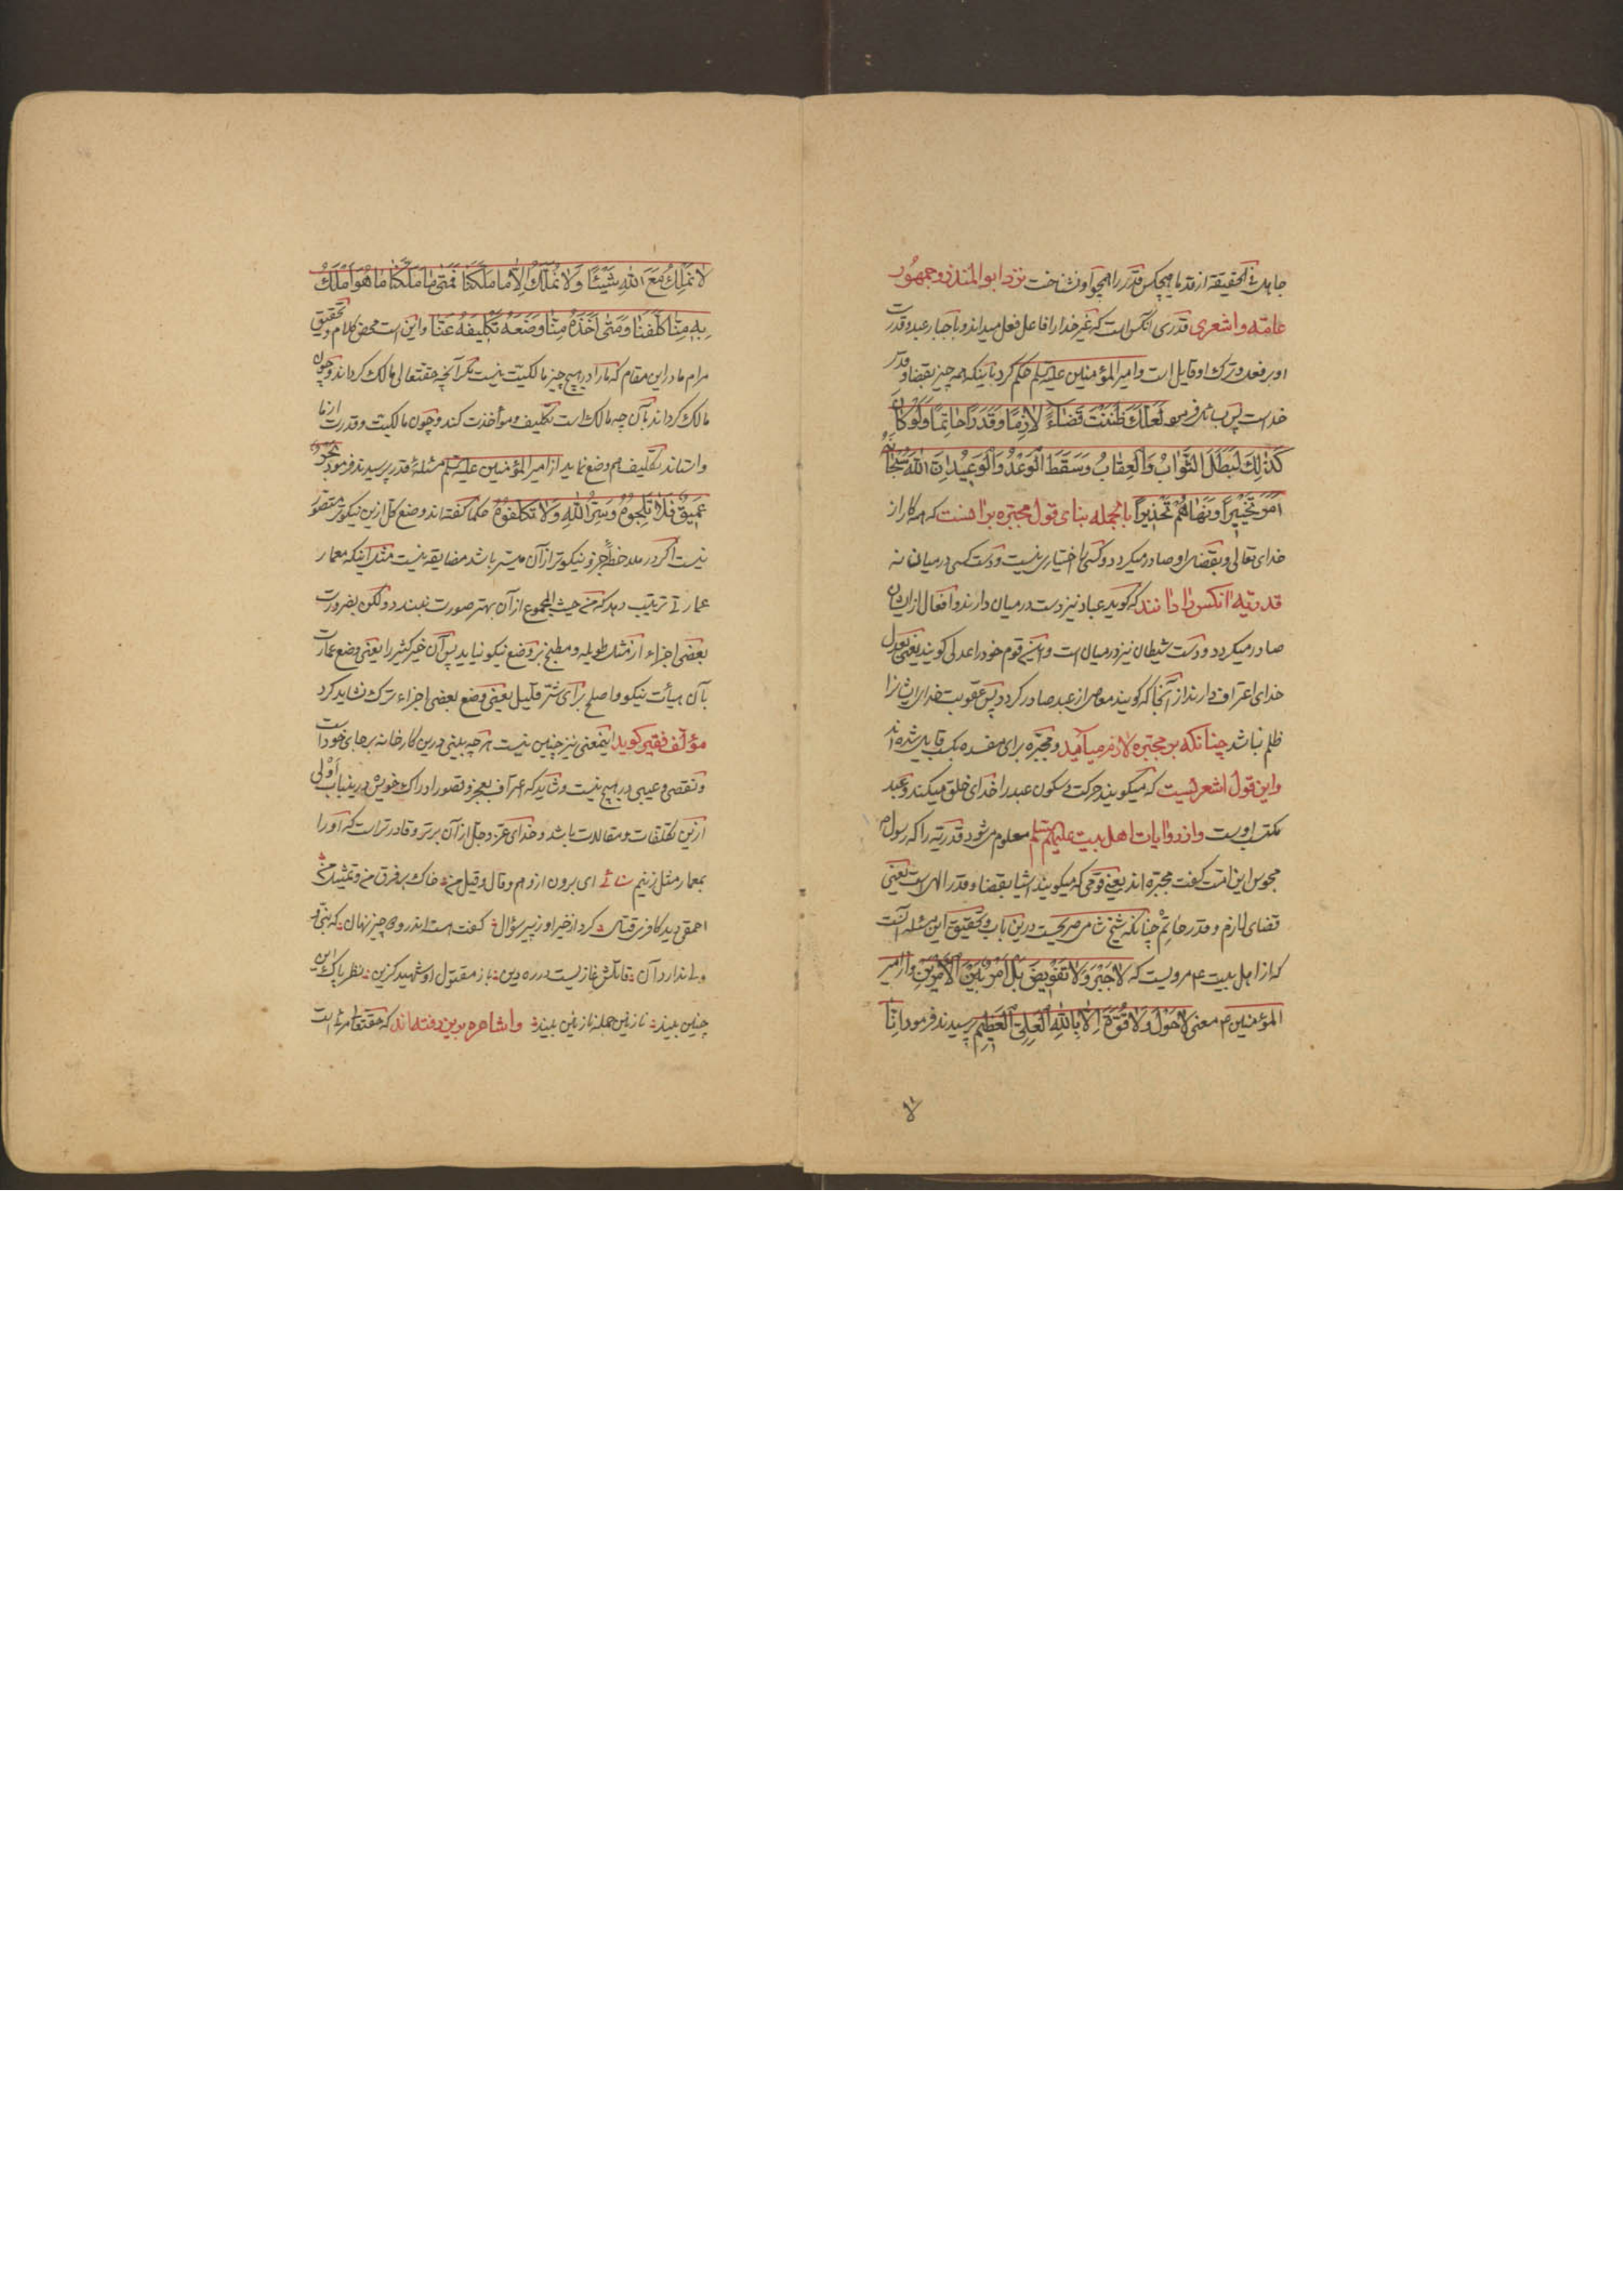 جاهل فی الحقیقة از قدما هیچکس قدر را همچو او نشناخت نزد ابو المنذر و جمهور
عامّه و اشعری قدری آنکس است که غیر خدا را فاعل فعل میداند و باجبار عبد و قدرت
او بر فعل و ترک او قایل است و امیر المؤمنین علیه السلم حکم کرد باینکه همه چیز بقضا و قدر
خداست پس بسائل فرمود لَعَلَّكَ ظَنَنْتَ قَضَاءً لَازِمًا وَقَدَرًا حَاتِمًا وَلَوْ كَانَ
كَذٰلِكَ لَبَطَلَ الثَّوَابُ وَالْعِقَابُ وَسَقَطَ الْوَعْدُ وَالْوَعِيدُ اِنَّ اللّٰهَ سُبْحَانَهُ
اَمَرَ تَخْيِيرًا وَنَهَاهُمْ تَحْذِيرًا بالجمله بنای قول مجبّره بر آنست که همه کار از
خدای تعالی و بقضای او صادر میکردد و کسی را اختیاری نیست و دست کسی در میان نه
قدریّه آنکس را دانند که کوید عباد نیز دست در میان دارند و افعال از ایشان
صادر میکردد و دست شیطان نیز در میان است و این قوم خود را عدلی کویند یعنی بعدل
خدای اعتراف دارند از آنجا که کویند معاصی از عبد صادر کردد پس عقوبت خدا ایشانرا
ظلم نباشد چنانکه بر مجبّره لازم میآید و مجبّره برای مفسده بکسب قایل شده اند
و این قول اشعریست که میکویند حرکت و سکون عبد را خدای خلق میکند و عبد
مکتسب اوست و از روایات اهل بیت علیهم السلم معلوم میشود قدریّه را که رسول ص
مجوس این امّت کفت مجبّره اند یعنی قومی که میکویند اشیا بقضا و قدر الهی است یعنی
قضای لازم و قدر حاتم چنانکه شیخ شامی صریحست درین باب و تحقیق این مسئله آنست
که از اهل بیت ع مرویست که لَا جَبْرَ وَلَا تَفْوِيضَ بَلْ اَمْرٌ بَيْنَ الْاَمْرَيْنِ و از امیر
المؤمنین ع معنی لَا حَوْلَ وَلَا قُوَّةَ اِلَّا بِاللّٰهِ الْعَلِيِّ الْعَظِيمِ پرسیدند فرمود اِنَّا
لَا نَمْلِكُ مَعَ اللّٰهِ شَيْئًا وَلَا نَمْلِكُ اِلَّا مَا مَلَّكَنَا فَمَتٰى مَا مَلَّكَنَا مَا هُوَ اَمْلَكُ
بِهِ مِنَّا كَلَّفَنَا وَمَتٰى اَخَذَهُ مِنَّا وَضَعَ تَكْلِيفَهُ عَنَّا و این است محض کلام و تحقیق
مرام ما در این مقام که ما را در هیچ چیز مالکیّت نیست مکر آنچه حقتعالی مالک کرداند و چون
مالک کرداند بآن چه مالک است تکلیف و مؤاخذت کند و چون مالکیت و قدرت از ما
واستاند تکلیف هم وضع نماید از امیر المؤمنین علیه السلم مسئلهٔ قدر پرسیدند فرمود بَحْرٌ
عَمِيقٌ فَلَا تَلِجُوهُ وَسِرُّ اللّٰهِ وَلَا تَكَلَّفُوهُ حکما کفته اند وضع کلّ ازین نیکوتر متصوّر
نیست اکر در ملاحظهٔ جزو نیکوتر از آن میسّر باشد مضایقه نیست مثل اینکه معمار
عمارتی ترتیب دهد که من حیث المجموع از آن بهتر صورت نبندد و لکن بضرورت
بعضی اجزاء از مثل طویله و مطبخ بر وضع نیکو نیاید پس آن خیر کثیر را یعنی وضع عمارت
بآن هیأت نیکو و اصلح برای شرّ قلیل یعنی وضع بعضی اجزاء ترک نشاید کرد
مؤلّف فقیر کوید اینمعنی نیز چنین نیست هر چه بینی درین کارخانه بر جای خود است
و نقصی و عیبی در هیچ نیست و شاید که اعتراف بعجز و قصور ادراک خویش درینباب اَوْلی
ازین تکلّفات و مقالات باشد و خدای عزّ و جلّ از آن برتر و قادرتر است که او را
بمعمار مثل زنیم سنائی ای برون از وهم و قال و قیل من خاک بر فرق من و تمثیل من
احمقی دید کافری قتّال کرد از خیر او ز پیر سؤال کفت هست اندر و دو چیز نهان که نبی و
ولی ندارد آن قاتلش غازیست در ره دین باز مقتول او شهید کزین نظر پاک این
چنین بیند نازنین جمله نازنین بیند و اشاعره برین رفته اند که حقتعالی مرید است